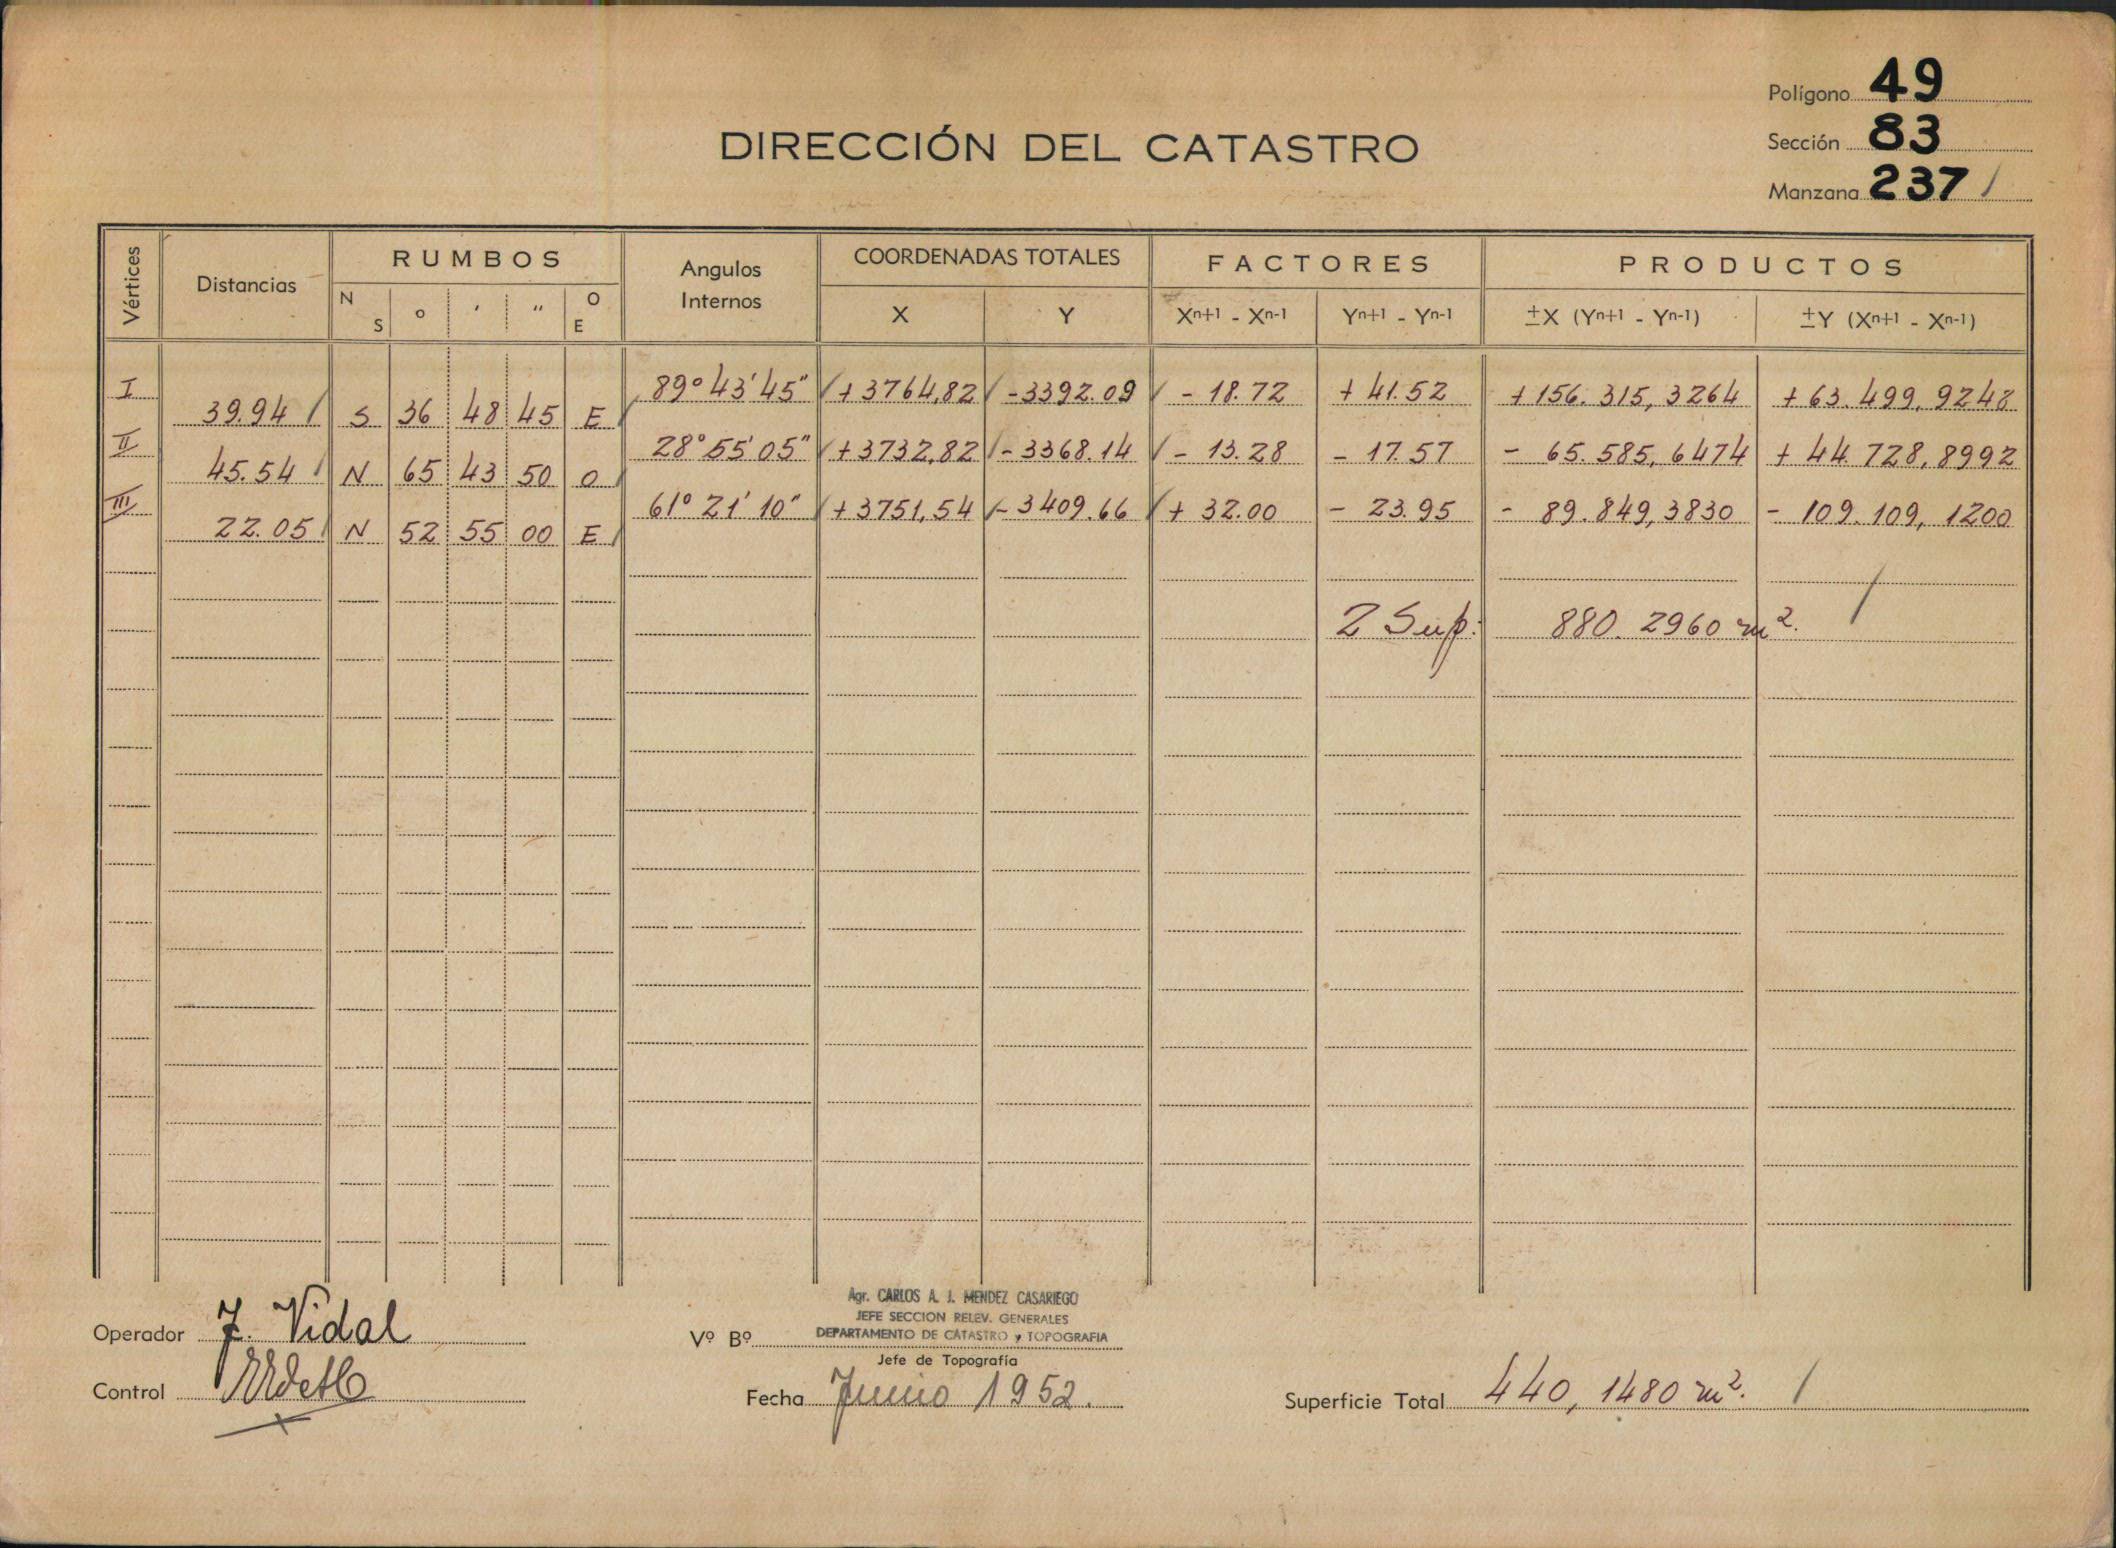 Polígono 49
DIRECCIÓN DEL CATASTRO
Sección 83
Manzana 237
Vértices Distancias RUMBOS Angulos Internos COORDENADAS TOTALES FACTORES PRODUCTOS
N S o ′ ″ O E X Y Xn+1 - Xn-1 Yn+1 - Yn-1 ±X (Yn+1 - Yn-1) ±Y (Xn+1 - Xn-1)
I 89° 43' 45" +3764,82 -3392.09 - 18.72 + 41.52 + 156.315,3264 + 63.499,9248
39.94 S 36 48 45 E
II 28° 55' 05" +3732,82 -3368.14 - 13.28 - 17.57 - 65.585,6474 + 44.728,8992
45.54 N 65 43 50 O
III 61° 21' 10" +3751,54 -3409.66 + 32.00 - 23.95 - 89.849,3830 - 109.109,1200
22.05 N 52 55 00 E
2 Sup: 880.2960 m².
Agr. CARLOS A. J. MENDEZ CASARIEGO
JEFE SECCION RELEV. GENERALES
DEPARTAMENTO DE CATASTRO y TOPOGRAFIA
Operador J. Vidal
Vº Bº
Jefe de Topografía
Control
Fecha Junio 1952.
Superficie Total 440,1480 m².